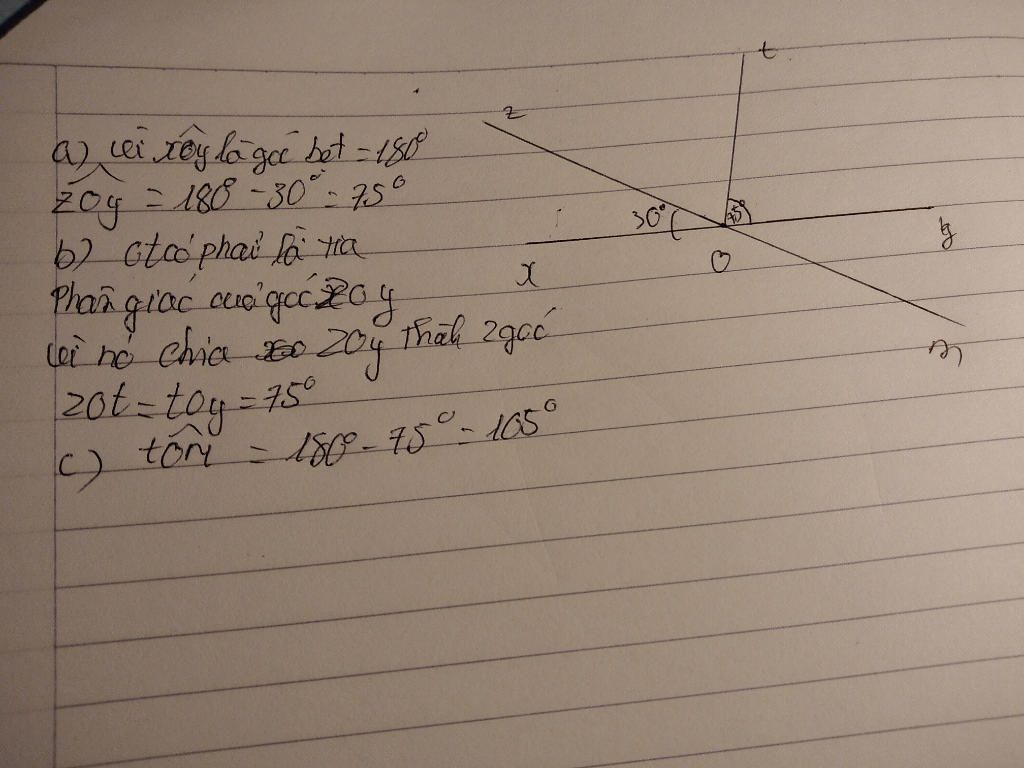 a) Vì xôy là góc bẹt = 180°
zOy = 180° - 30° = 75°
b) Ot có phải là tia
Phân giác của góc zOy
Vì nó chia zOy thành 2 góc
zOt = tOy = 75°
c) tÔm = 180° - 75° = 105°
t
z
30°
75°
x
O
y
m